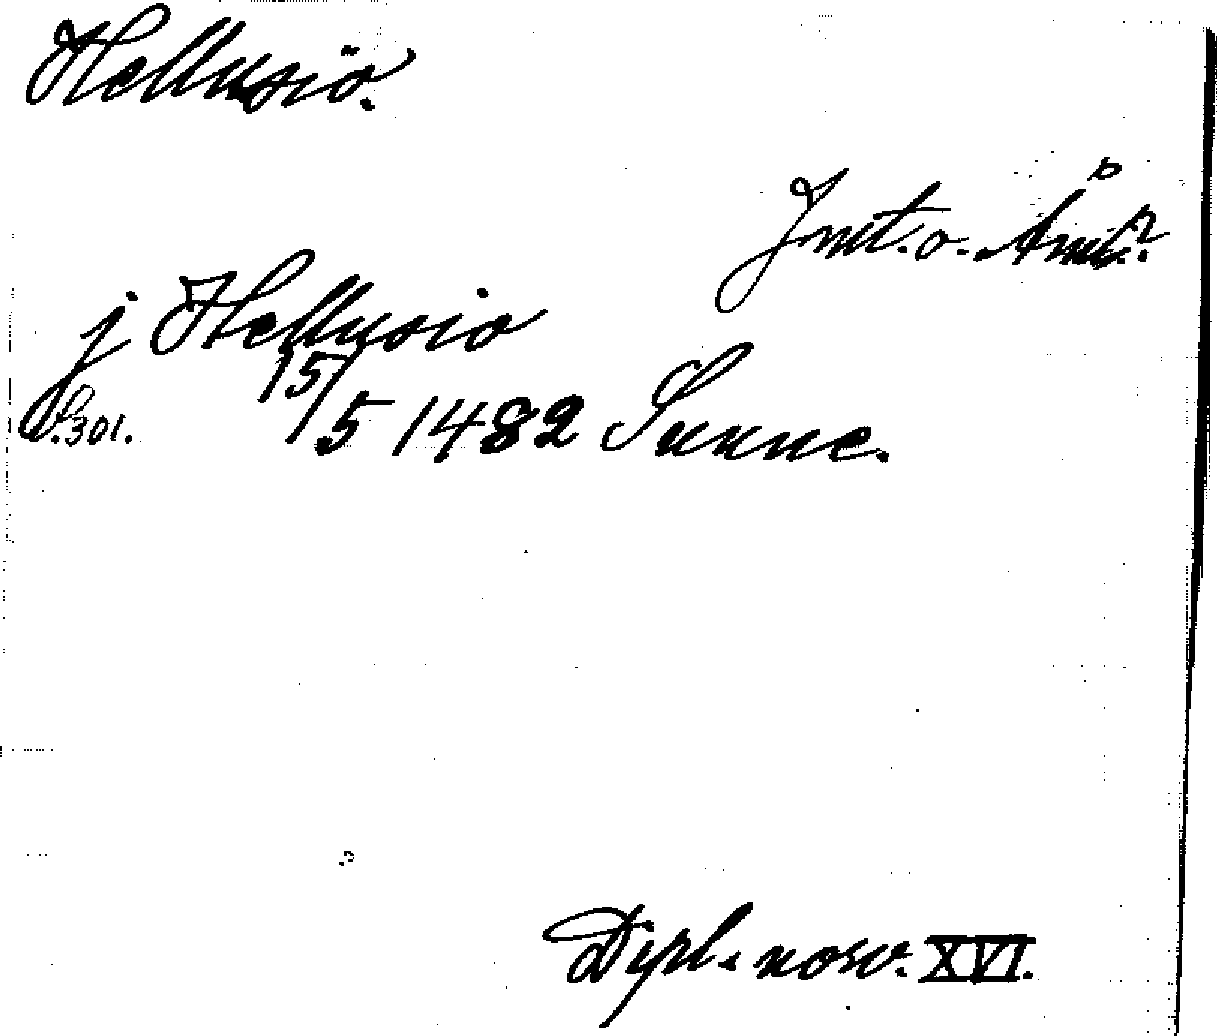 Hellusiö.
Jmt. o. Ång.?
j Hellusio
S. 301. 15/5 1482 Sunne.
Dipl. norv. XVI.